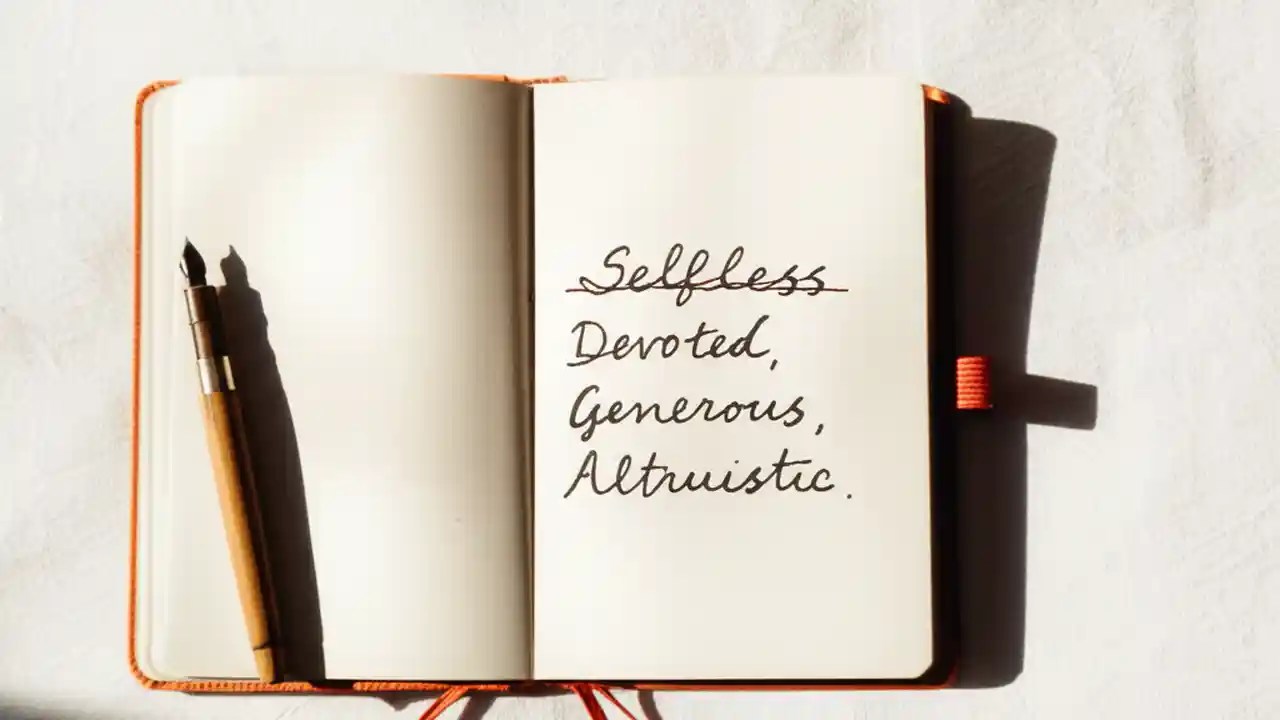 Selfless
Devoted,
Generous,
Altruistic.